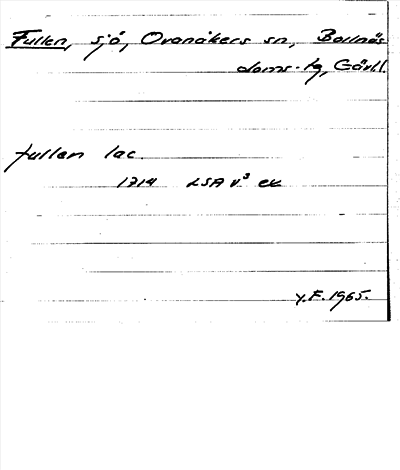 Fullen, sjö, Ovanåkers sn, Bollnäs
doms. tg, Gävl.
fullen lac.
1714 LSA v³ ek
Y.F. 1965.